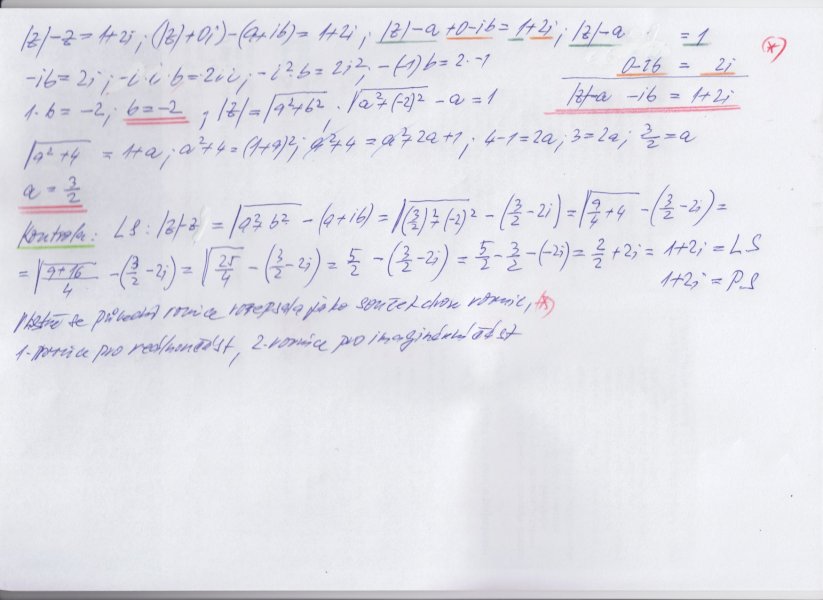 |z|-z=1+2i; (|z|+0i)-(a+ib)=1+2i; |z|-a+0-ib=1+2i; |z|-a = 1 (*)
-ib=2i; -i·i·b=2i·i; -i²·b=2i²; -(-1)b=2·-1 0-ib = 2i
1·b=-2; b=-2; |z|=√a²+b²; √a²+(-2)² -a=1 |z|-a -ib=1+2i
√a²+4 =1+a; a²+4=(1+a)²; a²+4=a²+2a+1; 4-1=2a; 3=2a; 3/2=a
a=3/2
Kontrola: LS: |z|-z =√a²+b² -(a+ib)=√(3/2)²+(-2)² -(3/2-2i)=√9/4+4 -(3/2-2i)=
=√9+16/4 -(3/2-2i)=√25/4 -(3/2-2i)=5/2 -(3/2-2i)=5/2-3/2-(-2i)=2/2+2i=1+2i=LS
1+2i=PS
se původní rovnice rozepsala jako součet dvou rovnic, (*)
1. rovnice pro reálnou část, 2. rovnice pro imaginární část